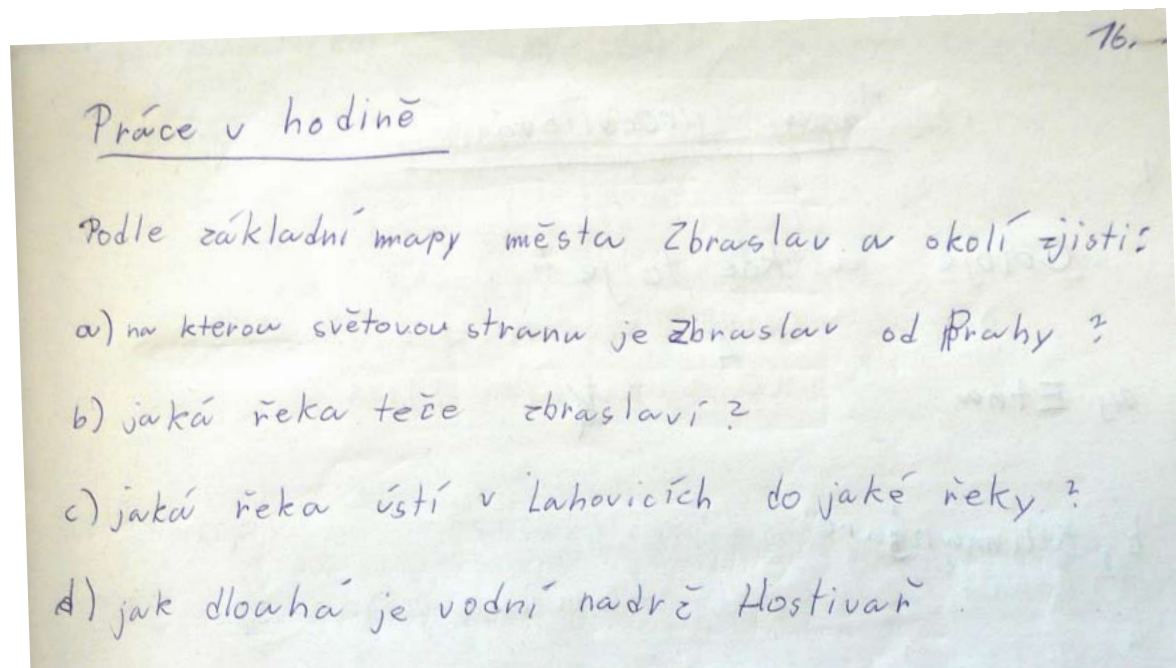 16.
Práce v hodině
Podle základní mapy města Zbraslav a okolí zjisti:
a) na kterou světovou stranu je Zbraslav od Prahy ?
b) jaká řeka teče zbraslaví ?
c) jaká řeka ústí v Lahovicích do jaké řeky ?
d) jak dlouhá je vodní nadrž Hostivař